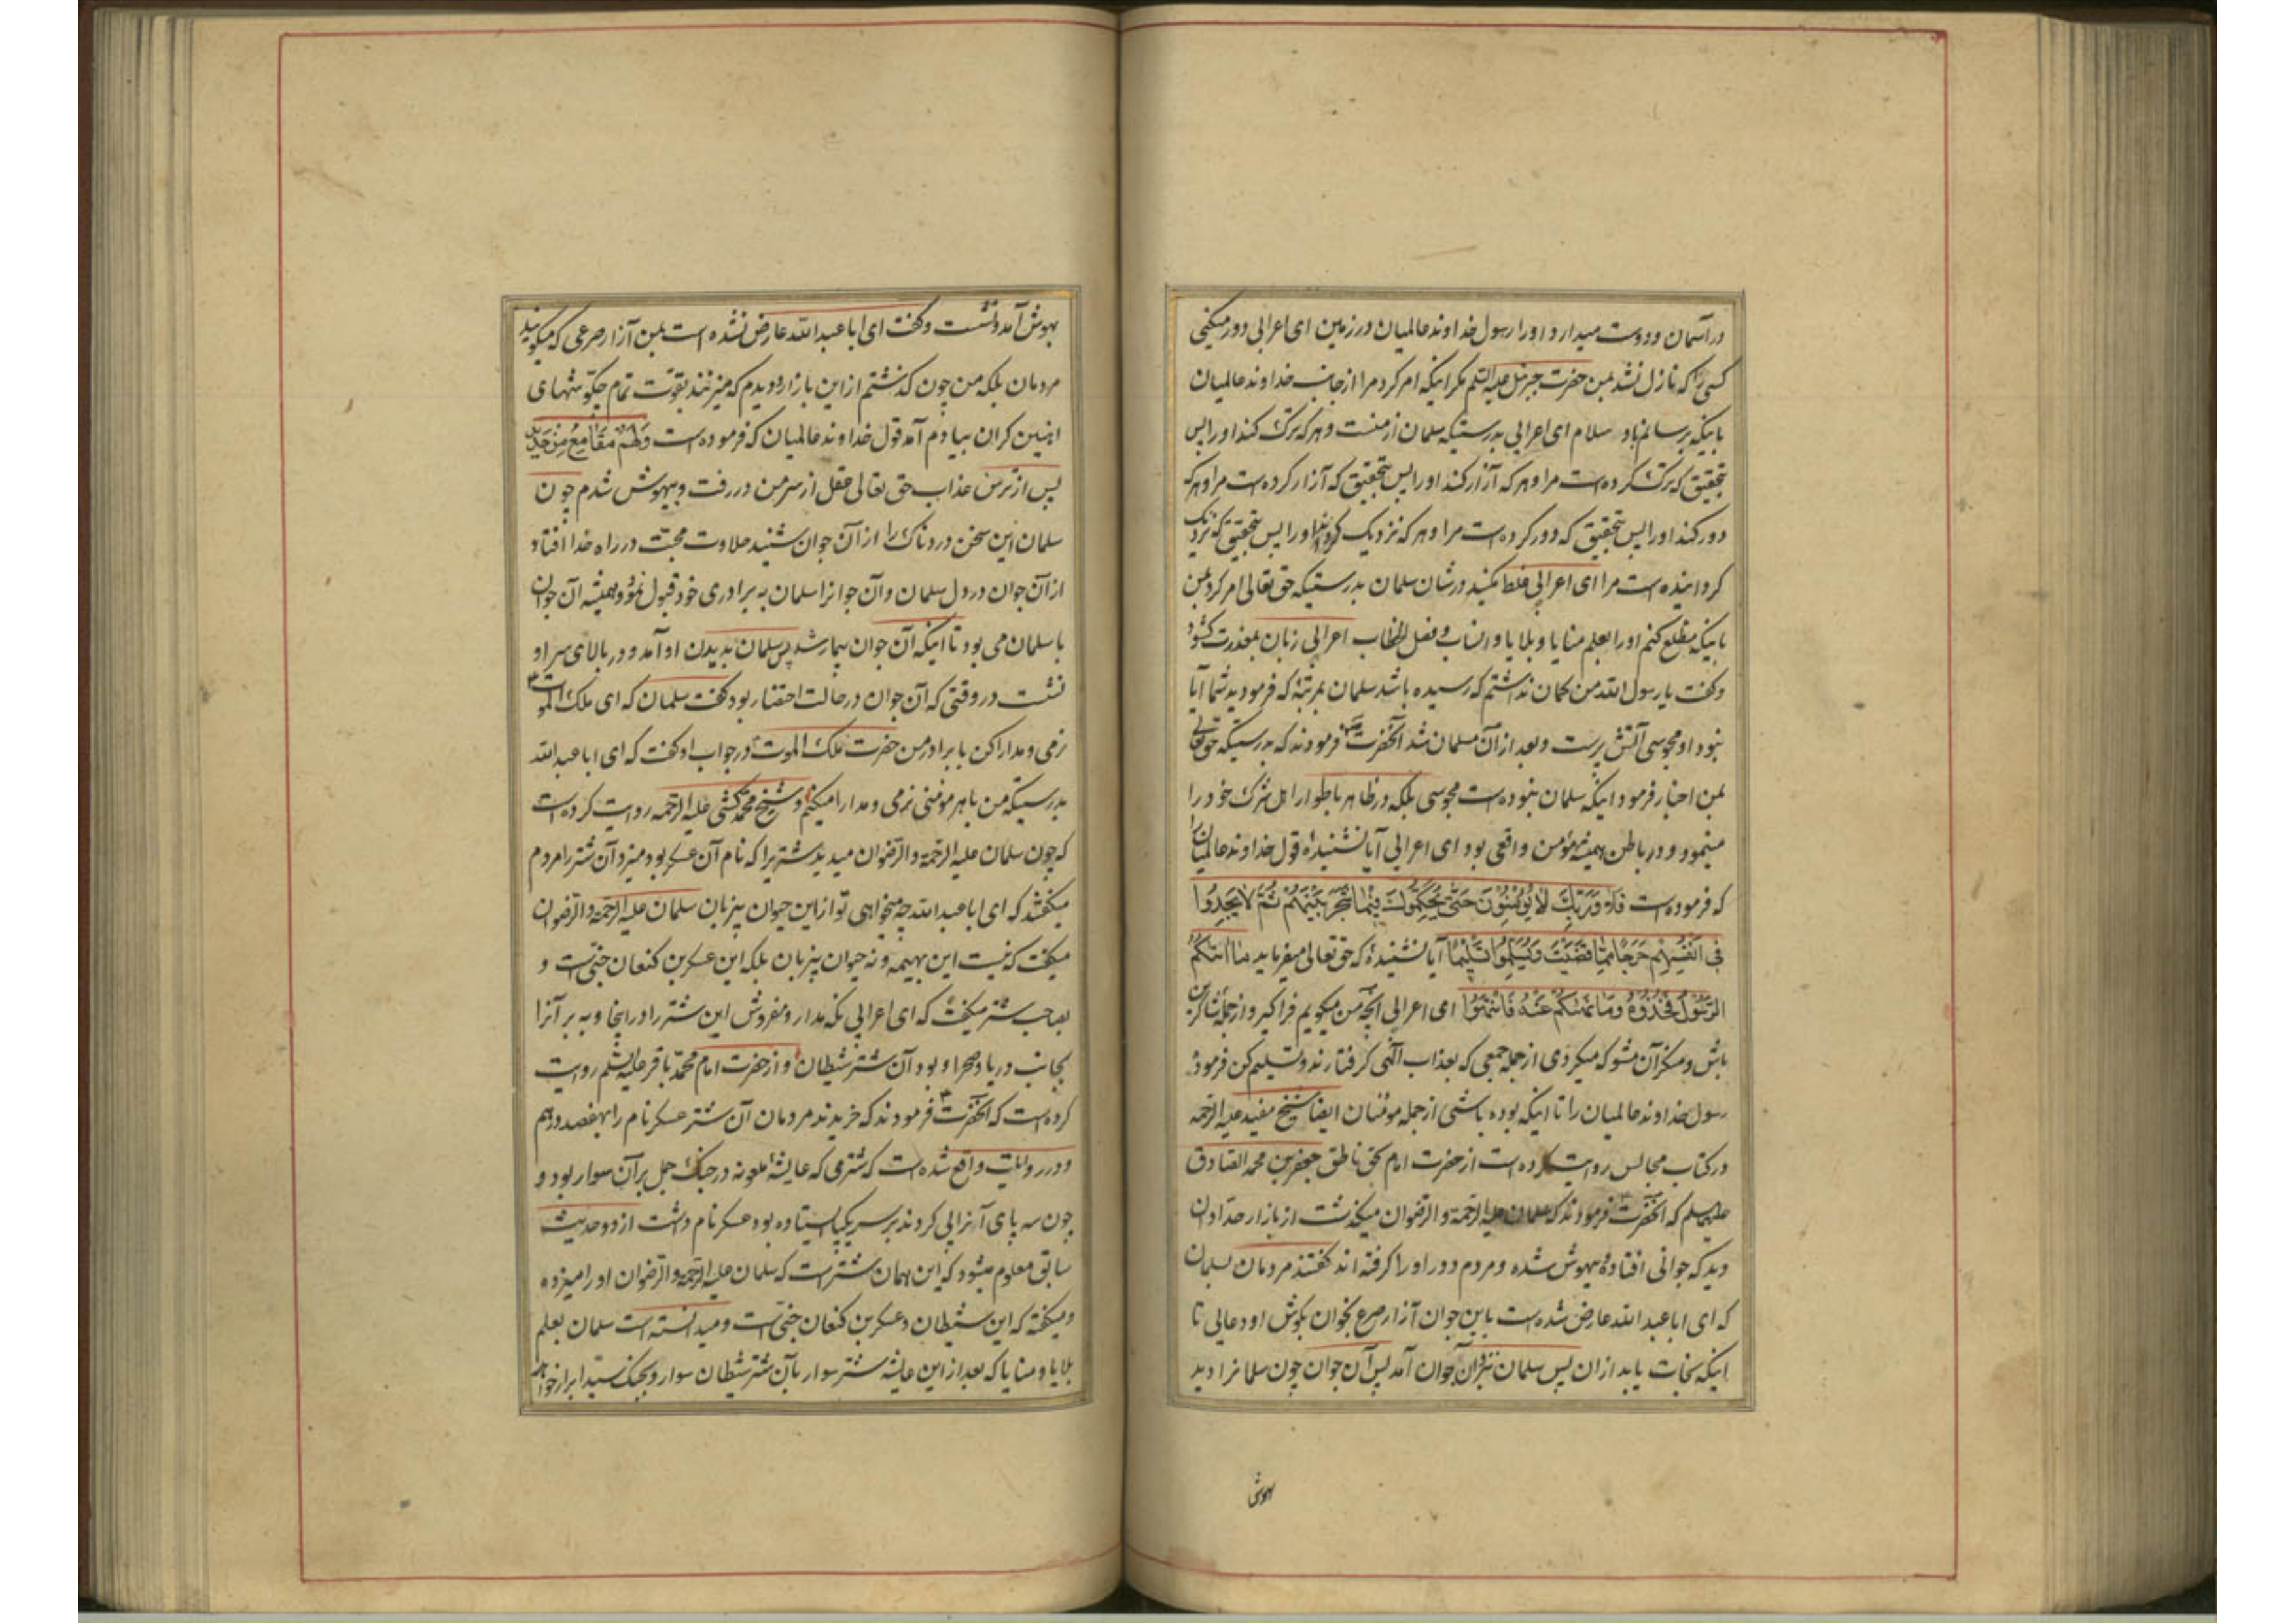 در آسمان و دوست میدارد او را رسول خداوند عالمیان در زمین ای اعرابی دور میکنی
کسی را که نازل نشد بمن حضرت جبرئیل علیه السلم مگر اینکه امر کرد مرا از جانب خداوند عالمیان
باینکه برسانم باو سلام ای اعرابی بدرستیکه سلمان از منست و هر که ترک کند او را پس
بتحقیق که ترک کرده است مرا و هر که آزار کند او را پس بتحقیق که آزار کرده است مرا و هر که
دور کند او را پس بتحقیق که دور کرده است مرا و هر که نزدیک گرداند او را پس بتحقیق که نزدیک
گردانیده است مرا ای اعرابی غلط مکنید در شان سلمان بدرستیکه حق تعالی امر کرد بمن
باینکه مطلع کنم او را بعلم منایا و بلایا و انساب و فصل الخطاب اعرابی زبان بمعذرت گشود
و گفت یا رسول الله من گمان نداشتم که رسیده باشد سلمان بمرتبهٔ که فرمودید شما آیا
نبود او مجوسی آتش پرست و بعد از آن مسلمان شد آنحضرت فرمودند که بدرستیکه حق تعالی
بمن اخبار فرمود اینکه سلمان نبوده است مجوسی بلکه در ظاهر باطوار اهل شرک خود را
مینمود و در باطن همیشه مؤمن واقعی بود ای اعرابی آیا نشنیدهٔ قول خداوند عالمیان را
که فرموده است فَلَا وَرَبِّكَ لَا يُؤْمِنُونَ حَتَّى يُحَكِّمُوكَ فِيمَا شَجَرَ بَيْنَهُمْ ثُمَّ لَا يَجِدُوا
فِي أَنْفُسِهِمْ حَرَجًا مِمَّا قَضَيْتَ وَيُسَلِّمُوا تَسْلِيمًا آیا نشنیدهٔ که حق تعالی میفرماید مَا آتَاكُمُ
الرَّسُولُ فَخُذُوهُ وَمَا نَهَاكُمْ عَنْهُ فَانْتَهُوا ای اعرابی آنچه من میگویم فراگیر و از جمله شاکرین
باش و منکر آن مشو که میگردی از جمله جمعی که بعذاب الهی گرفتارند و تسلیم کن فرمودهٔ
رسول خداوند عالمیان را تا اینکه بوده باشی از جمله مؤمنان ایضا شیخ مفید علیه الرحمه
در کتاب مجالس روایت کرده است از حضرت امام بحق ناطق جعفر بن محمد الصادق
علیهما سلم که آنحضرت فرمودند که سلمان علیه الرحمة و الرضوان میگذشت از بازار حدادان
دید که جوانی افتاده بیهوش شده و مردم دور او را گرفته اند گفتند مردمان بسلمان
که ای ابا عبد الله عارض شده است باین جوان آزار صرع بخوان بگوش او دعایی تا
اینکه نجات یابد از ان پس سلمان نزد آن جوان آمد پس آن جوان چون سلمانرا دید
بهوش
بهوش آمد و نشست و گفت ای ابا عبد الله عارض نشده است بمن آزار صرعی که میگویند
مردمان بلکه من چون گذشتم از این بازار و دیدم که میزنند بقوت تمام چکوشهای
اهنین گران بیادم آمد قول خداوند عالمیان که فرموده است وَلَهُمْ مَقَامِعُ مِنْ حَدِيدٍ
پس از ترس عذاب حق تعالی عقل از سر من در رفت و بیهوش شدم چون
سلمان این سخن دردناک را از آن جوان شنید حلاوت محبت در راه خدا افتاد
از آن جوان در دل سلمان و آن جوانرا سلمان به برادری خود قبول نمود و همیشه آن جوان
با سلمان می بود تا اینکه آن جوان بیمار شد پس سلمان بدیدن او آمد و در بالای سر او
نشست در وقتی که آن جوان در حالت احتضار بود گفت سلمان که ای ملک الموت
نرمی و مدارا کن با برادر من حضرت ملک الموت در جواب او گفت که ای ابا عبد الله
بدرستیکه من با هر مؤمنی نرمی و مدارا میکنم و شیخ محمد کشی علیه الرحمه روایت کرده است
که چون سلمان علیه الرحمة و الرضوان میدید شتریرا که نام آن عسکر بود میزد آن شتر را مردم
میگفتند که ای ابا عبد الله چه میخواهی تو از این حیوان بیزبان سلمان علیه الرحمة و الرضوان
میگفت که نیست این بهیمه و نه حیوان بیزبان بلکه این عسکر بن کنعان جنی است و
بصاحب شتر میگفت که ای اعرابی نگه مدار و مفروش این شتر را در اینجا و به بر آنرا
بجانب دریا و صحرا و بود آن شتر شیطان و از حضرت امام محمد باقر علیه السلم روایت
کرده است که آنحضرت فرمودند که خریدند مردمان آن شتر عسکر نام را بهفصد درهم
و در روایات واقع شده است که شتری که عایشهٔ ملعونه در جنگ جمل بر آن سوار بود و
چون سه پای آنرا پی کردند بر سر یکپا ایستاده بود عسکر نام داشت از دو حدیث
سابق معلوم میشود که این همان شتر است که سلمان علیه الرحمة و الرضوان او را میزده
و میگفته که این شیطان و عسکر بن کنعان جنی است و میدانسته است سلمان بعلم
بلایا و منایا که بعد از این عایشه شتر سوار بآن شتر شیطان سوار و بجنگ سید ابرار خواهد